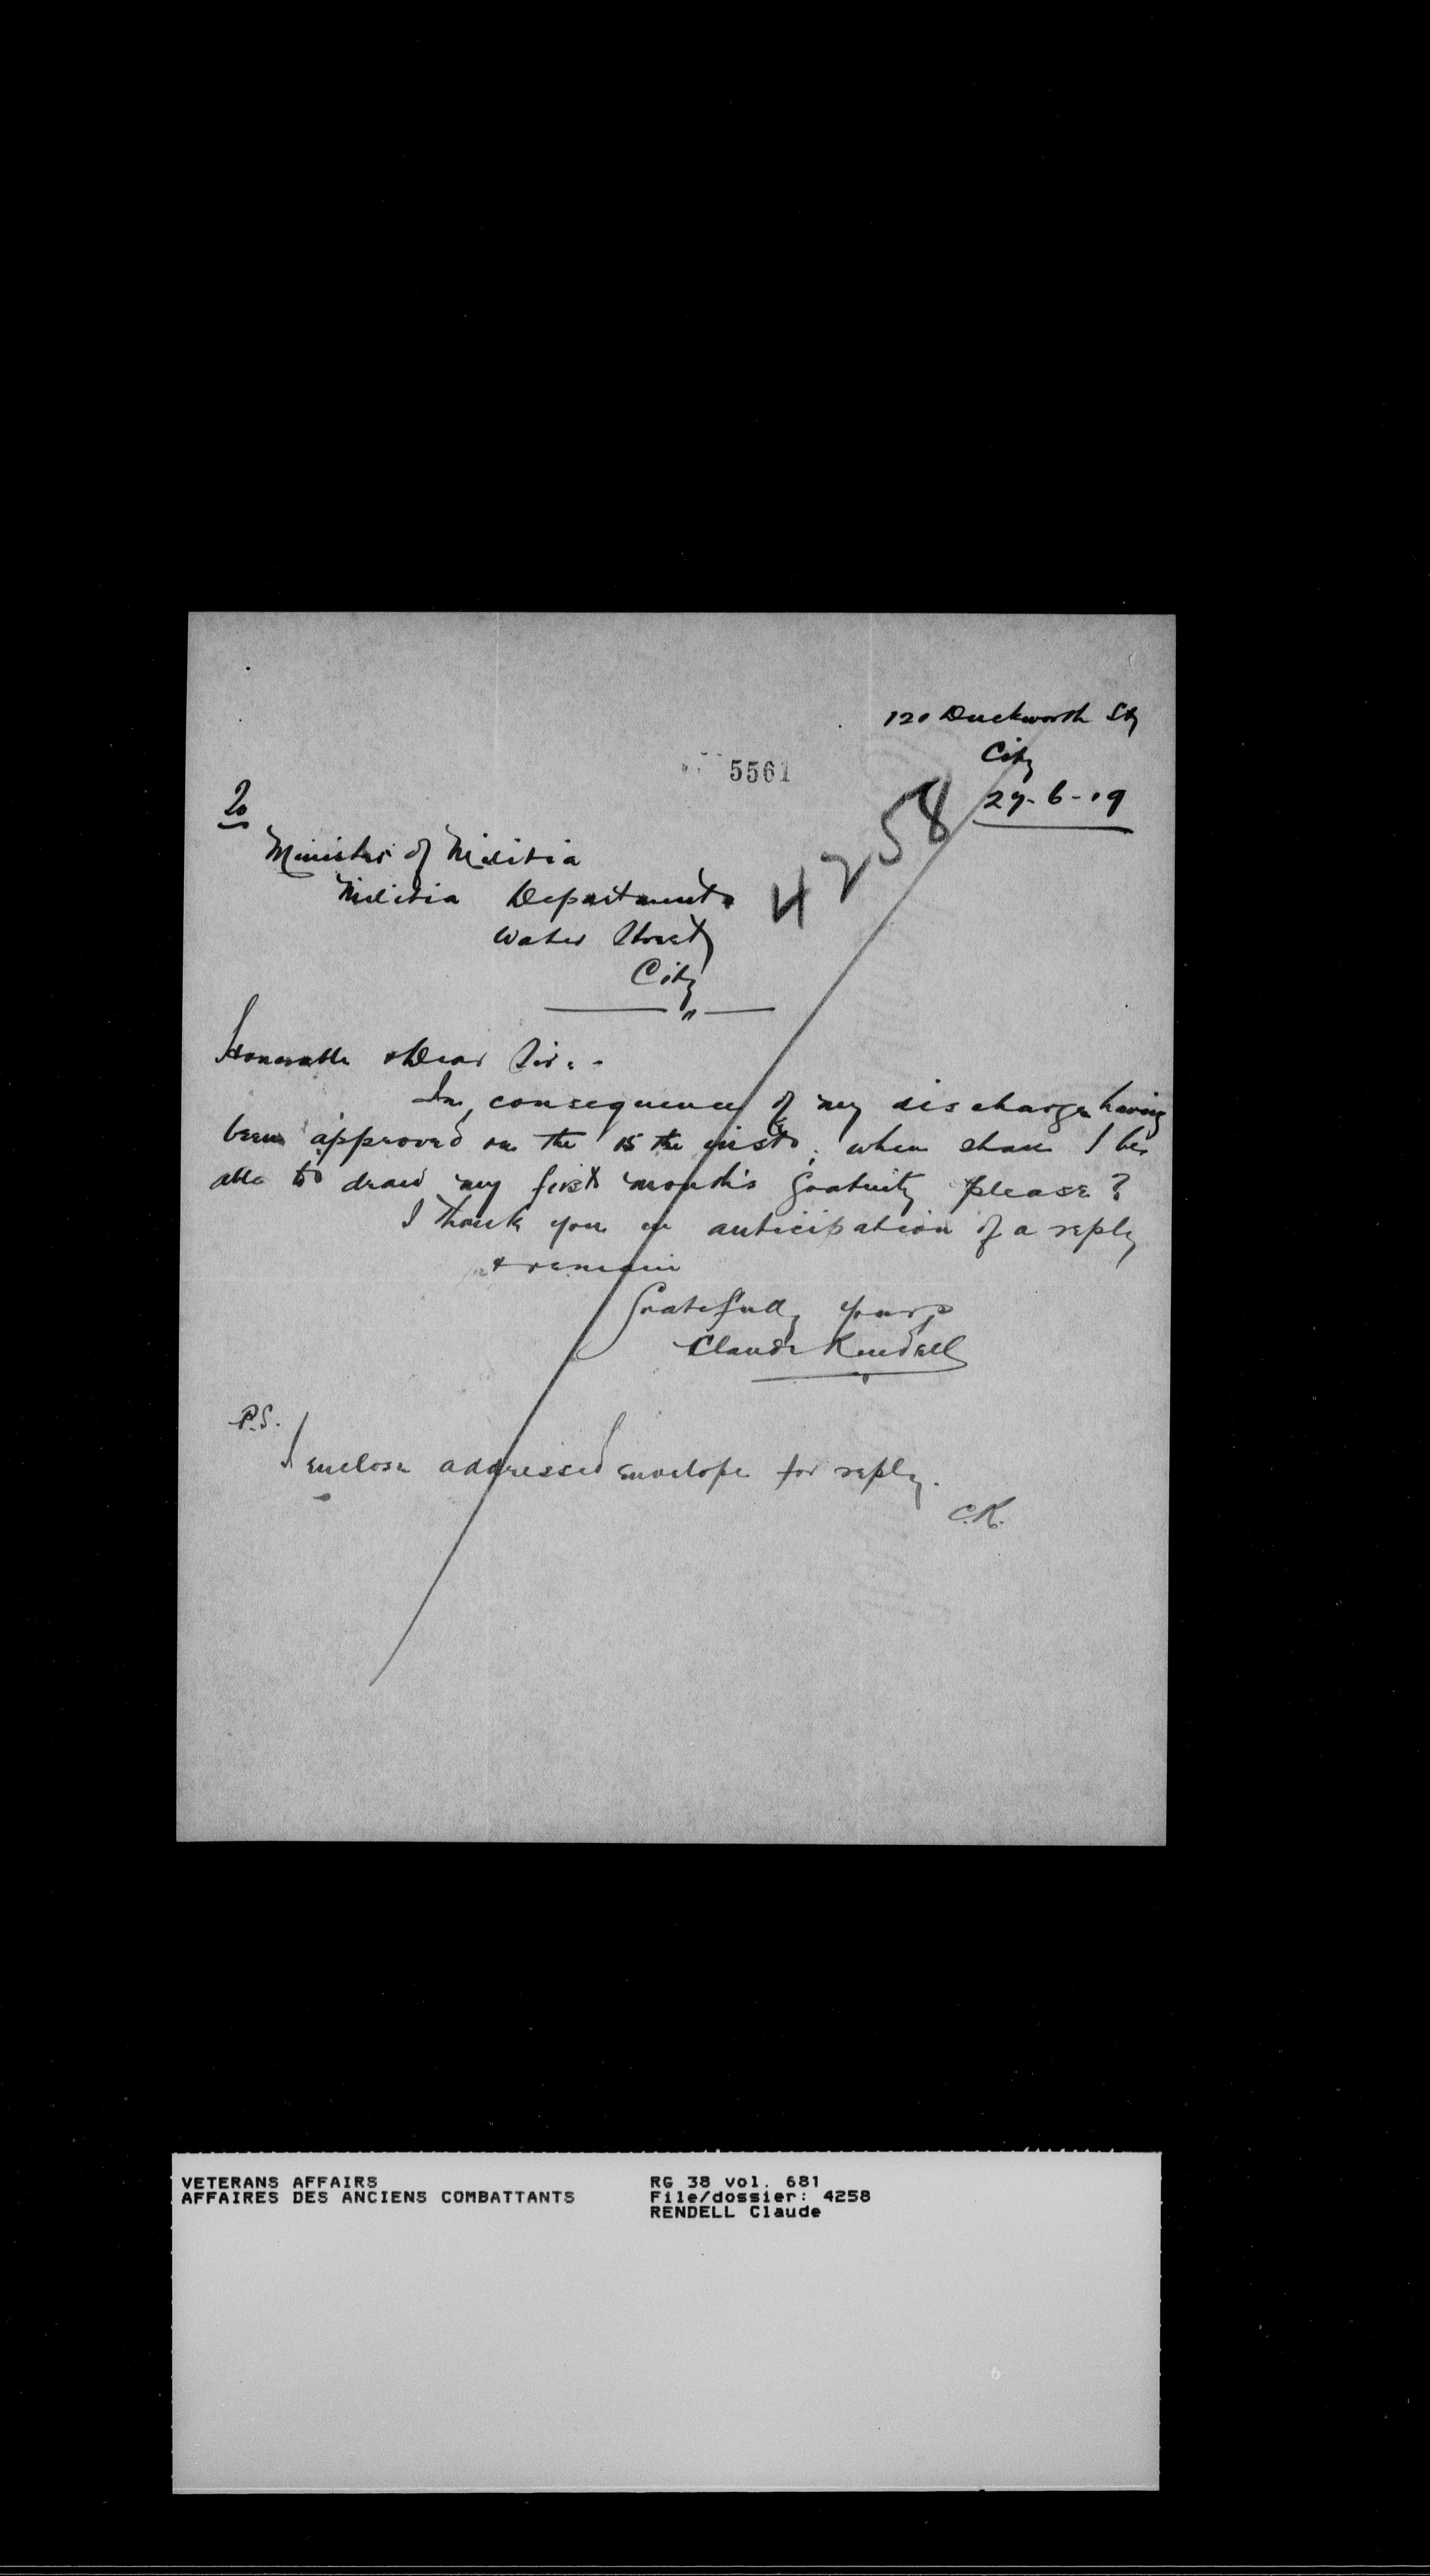 120 Duckworth St
City
5561
27-6-19
4258
To
Minister of Militia
Militia Department
Water Street
City
Honorable & Dear Sir:-
In consequence of my discharge having
been approved on the 15th inst, when shall I be
able to draw my first month's gratuity please?
I thank you in anticipation of a reply
& remain
Gratefully yours
Claude Rendell
P.S.
I enclose addressed envelope for reply.
C.R.
VETERANS AFFAIRS
AFFAIRES DES ANCIENS COMBATTANTS
RG 38 vol. 681
File/dossier: 4258
RENDELL Claude